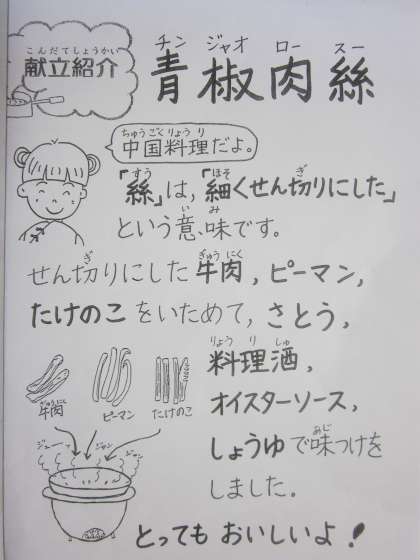 こんだてしょうかい
献立紹介
チン ジャオ ロー スー
青椒肉絲
ちゅうごくりょうり
中国料理だよ。
すう ほそ ぎ
「絲」は,「細くせん切りにした」
い み
という意味です。
ぎ ぎゅうにく
せん切りにした牛肉,ピーマン,
たけのこをいためて,さとう,
りょう り しゅ
料理酒,
オイスターソース,
あじ
しょうゆで味つけを
しました。
ぎゅうにく
牛肉
ピーマン
たけのこ
ジューッ ジャン ジャン
とってもおいしいよ!